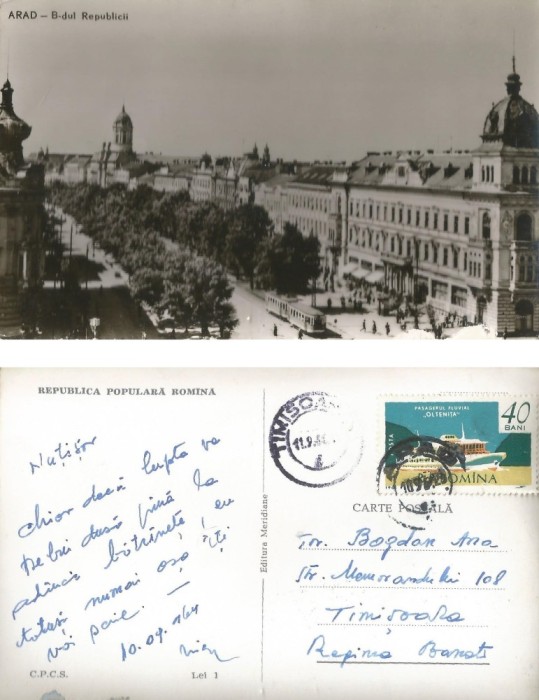 ARAD – B-dul Republicii
REPUBLICA POPULARĂ ROMÎNĂ
chior dacă lupta va
trebui dusă până la
adînci bătrînețe, eu
totuși numai așa îți
voi scrie —
10.09.964
C.P.C.S.
Lei 1
Editura Meridiane
TIMIȘOA
11.9.64
PASAGERUL FLUVIAL
"OLTENIȚA"
40
BANI
POȘTA
ROMÎNA
CARTE POȘTALĂ
Tov. Bogdan Ana
Str. Memorandului 108
Timișoara
Regiunea Banat